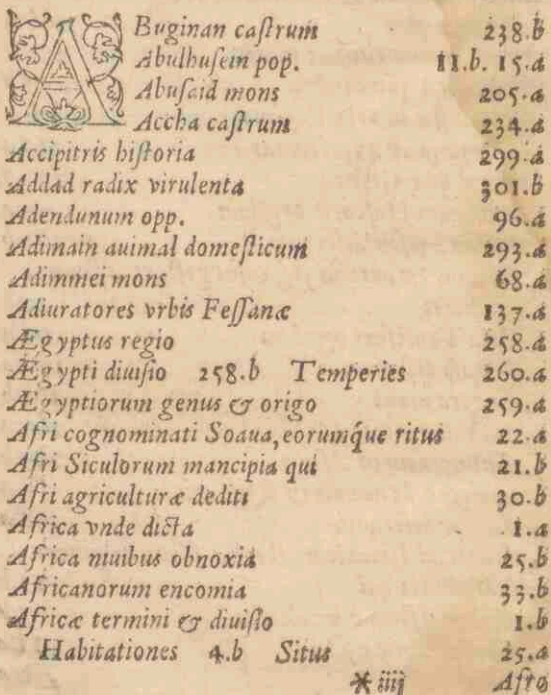 ABuginan castrum 238.b
Abulhusein pop. 11.b. 15.a
Abusaid mons 205.a
Accha castrum 234.a
Accipitris historia 299.a
Addad radix virulenta 301.b
Adendunum opp. 96.a
Adimain auimal domesticum 293.a
Adimmei mons 68.a
Adiuratores vrbis Fessanæ 137.a
Ægyptus regio 258.a
Ægypti diuisio 258.b Temperies 260.a
Ægyptiorum genus & origo 259.a
Afri cognominati Soaua, eorumq́ue ritus 22.a
Afri Siculorum mancipia qui 21.b
Afri agriculturæ dediti 30.b
Africa vnde dicta 1.a
Africa niuibus obnoxia 25.b
Africanorum encomia 33.b
Africæ termini & diuisio 1.b
Habitationes 4.b Situs 25.a
* iiij Afro